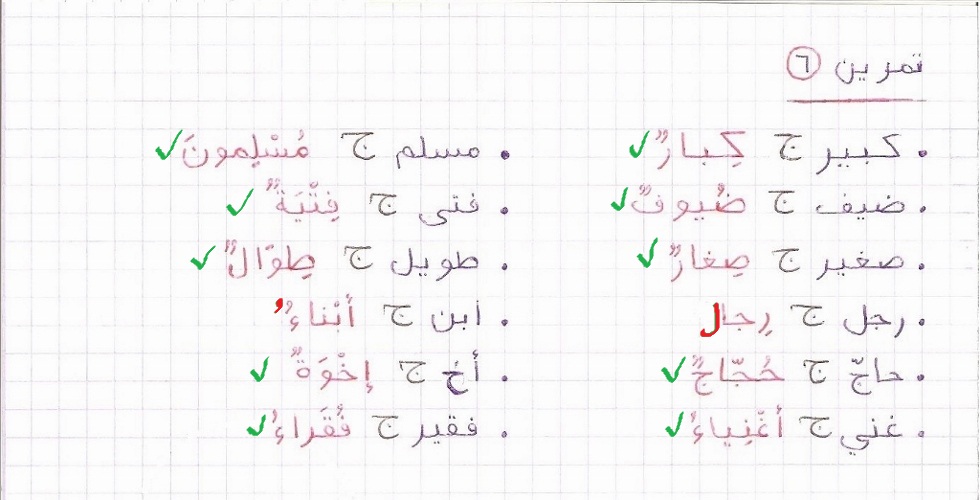 تمرين ٦
• كبير ج كِبارٌ ✓ • مسلم ج مُسْلِمونَ ✓
• ضيف ج ضُيوفٌ ✓ • فتى ج فِتْيَةٌ ✓
• صغير ج صِغارٌ ✓ • طويل ج طِوَالٌ ✓
• رجل ج رِجال • ابن ج أبْناءٌ
• حاجّ ج حُجّاجٌ ✓ • أخ ج إخْوَةٌ ✓
• غني ج أغْنِياءُ ✓ • فقير ج فُقَراءُ ✓